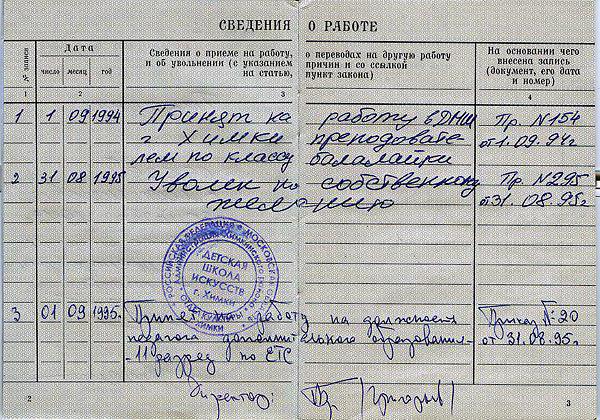 СВЕДЕНИЯ О РАБОТЕ
№ записи
Дата
число месяц год
Сведения о приеме на работу, о переводах на другую работу
и об увольнении (с указанием причин и со ссылкой
на статью, пункт закона)
На основании чего
внесена запись
(документ, его дата
и номер)
1 2 3 4
1 1 09 1994 Принят на работу в ДШИ Пр. N 154
г Химки преподавате- от 1.09.94г.
лем по классу балалайки
2 31 08 1995 Уволен по собственному Пр. N 295
желанию от 31.08.95г
РОССИЙСКАЯ ФЕДЕРАЦИЯ МОСКОВСКАЯ
ДЕТСКАЯ
ШКОЛА
ИСКУССТВ
г. Химки
3 01 09 1995. работу на должность Приказ № 20
педагога дополнительного образования- от 31.08.95г.
- 11 разряд по ЕТС
Директор:
2 3